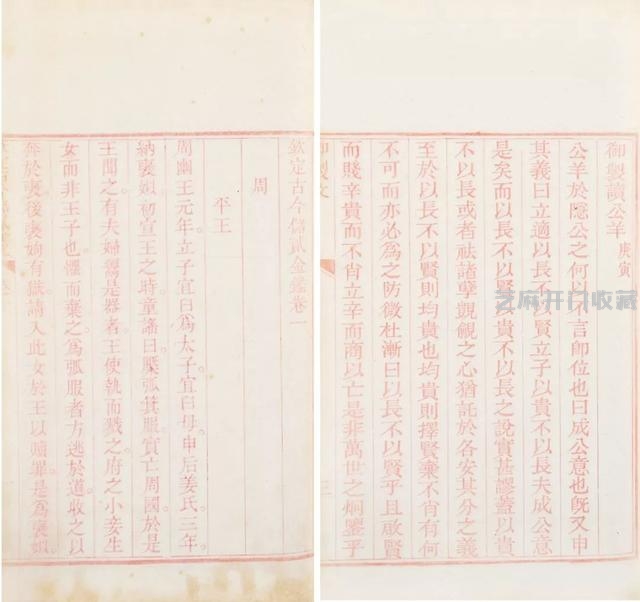 御製讀公羊 庚寅
公羊於隱公之何以不言卽位也曰成公意也旣又申
其義曰立適以長不以賢立子以貴不以長夫成公意
是矣而以長不以賢以貴不以長之說實甚謬蓋以貴
不以長或者祛諸孽覬覦之心猶託於各安其分之義
至於以長不以賢則均貴也均貴則擇賢棄不肖有何
不可而亦必為之防微杜漸曰以長不以賢乎且啟賢
而賤辛貴而不肖立辛而商以亡是非萬世之炯鑒乎
御製文
三
欽定古今儲貳金鑑卷一
周
平王
周幽王元年立子宜臼為太子宜臼母申后姜氏三年
納褒姒初宣王之時童謠曰檿弧箕服實亡周國於是
王聞之有夫婦鬻是器者王使執而戮之府之小妾生
女而非王子也懼而棄之為弧服者方逃於道收之以
奔於褒後褒姁有獄請入此女於王以贖罪是為褒姒
芝麻开门收藏